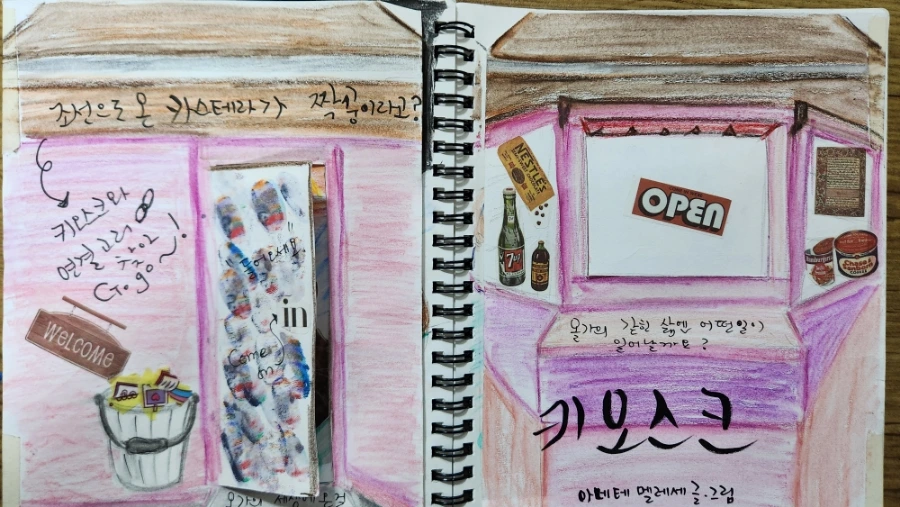 조선으로 온 카스테라가 짝꿍이라고?
키오스크와
연결고리
찾고
Go go~!
welcome
들어오세요.
in
Come
on
올가의 세상에
NESTLE'S
OPEN
7up
올가의 갇힌 삶엔 어떤일이
일어날까요?
키오스크
아네테 멜레세 글.그림